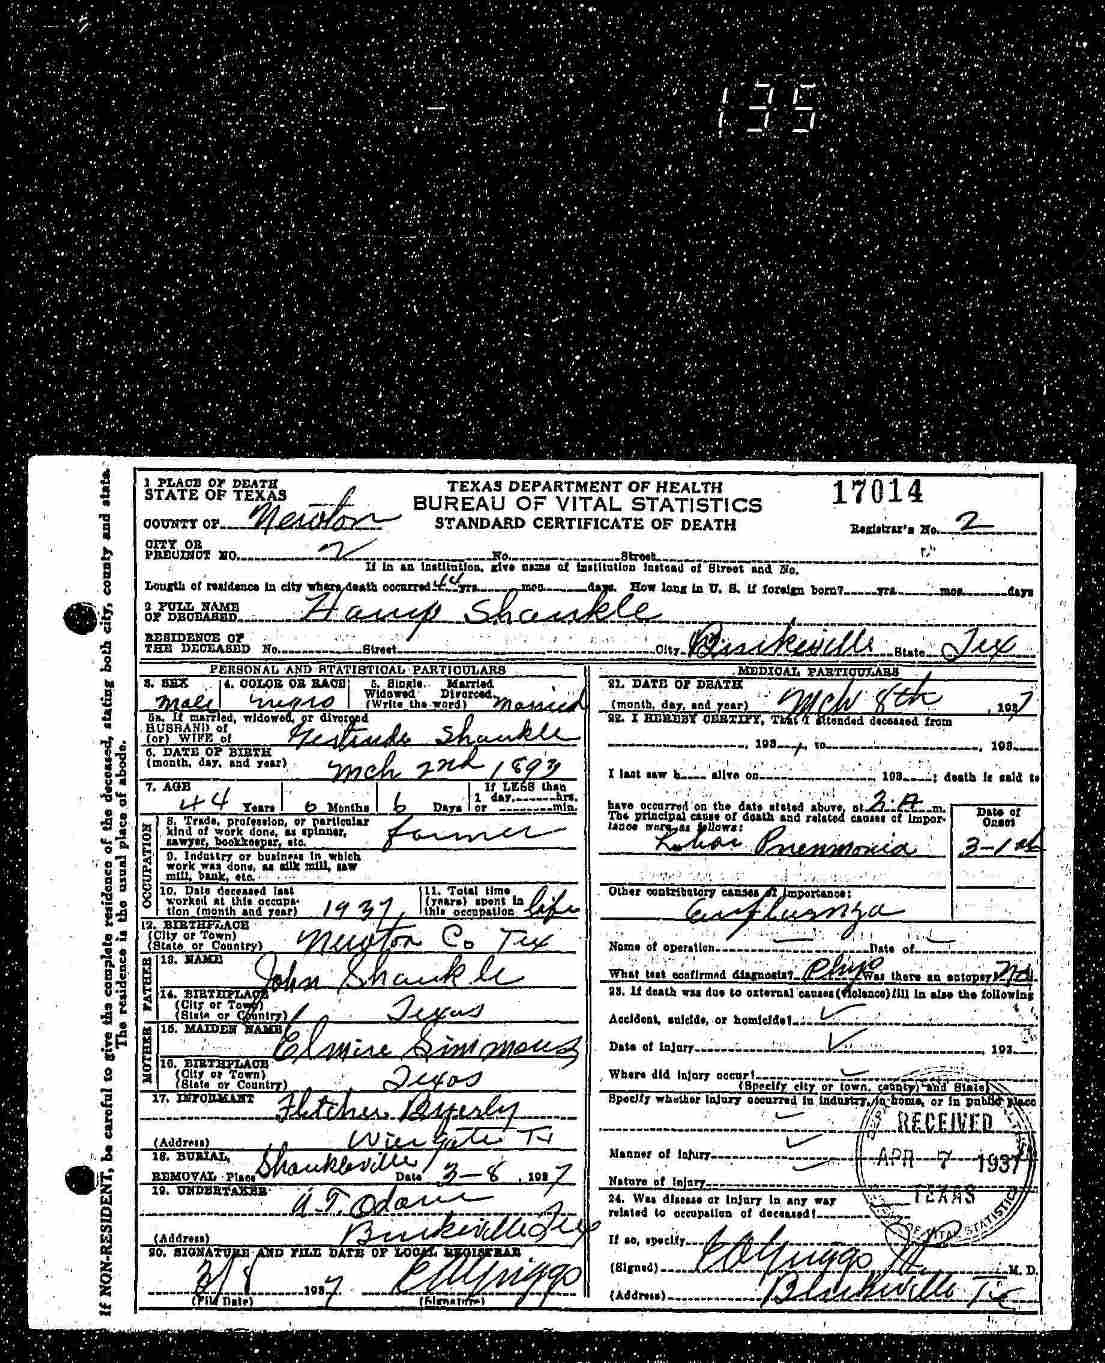 135
1 PLACE OF DEATH
STATE OF TEXAS
COUNTY OF Newton
TEXAS DEPARTMENT OF HEALTH
BUREAU OF VITAL STATISTICS
STANDARD CERTIFICATE OF DEATH
17014
Registrar's No. 2
CITY OR
PRECINCT NO. 2 No. Street
If in an institution, give name of institution instead of Street and No.
Length of residence in city where death occurred 44 yrs. mos. days. How long in U. S. if foreign born? yrs. mos. days
2 FULL NAME
OF DECEASED Hamp Shankle
RESIDENCE OF
THE DECEASED No. Street City Burkeville State Tex
PERSONAL AND STATISTICAL PARTICULARS
3. SEX
Male
4. COLOR OR RACE
negro
5. Single. Married.
Widowed Divorced.
(Write the word) married
5a. If married, widowed, or divorced
HUSBAND of
(or) WIFE of Gertrude Shankle
6. DATE OF BIRTH
(month, day, and year) Mch 2nd 1893
7. AGE
44 Years 6 Months 6 Days
If LESS than
1 day, hrs.
or min.
OCCUPATION
8. Trade, profession, or particular
kind of work done, as spinner,
sawyer, bookkeeper, etc. farmer
9. Industry or business in which
work was done, as silk mill, saw
mill, bank, etc.
10. Date deceased last
worked at this occupa-
tion (month and year) 1937
11. Total time
(years) spent in
this occupation life
12. BIRTHPLACE
(City or Town)
(State or Country) Newton Co Tex
FATHER
13. NAME John Shankle
14. BIRTHPLACE
(City or Town)
(State or Country) Texas
MOTHER
15. MAIDEN NAME Elmire Simmons
16. BIRTHPLACE
(City or Town)
(State or Country) Texas
17. INFORMANT Fletcher Byerly
(Address) Wiergate Tx
18. BURIAL,
REMOVAL Place Shankleville Date 3-8, 1937
19. UNDERTAKER
(Address) Burkeville Tex
20. SIGNATURE AND FILE DATE OF LOCAL REGISTRAR
3/8 1937
(File Date) (Signature)
MEDICAL PARTICULARS
21. DATE OF DEATH
(month, day, and year) Mch 8th, 1937
22. I HEREBY CERTIFY, That I attended deceased from
, 193 , to , 193
I last saw h alive on , 193 ; death is said to
have occurred on the date stated above, at 3 A m.
The principal cause of death and related causes of impor-
tance were as follows:
Lobar Pneumonia
Date of
Onset
3-1
Other contributory causes of importance:
Influenza
Name of operation Date of
What test confirmed diagnosis? Phys Was there an autopsy? No
23. If death was due to external causes (violence) fill in also the following
Accident, suicide, or homicide?
Date of injury , 193
Where did injury occur?
(Specify city or town, county, and State)
Specify whether injury occurred in industry, in home, or in public place
Manner of injury
Nature of injury
24. Was disease or injury in any way
related to occupation of deceased?
If so, specify
(Signed) M. D.
(Address) Burkeville Tx
RECEIVED
APR 7 1937
TEXAS
If NON-RESIDENT, be careful to give the complete residence of the deceased, stating both city, county and state.
The residence is the usual place of abode.